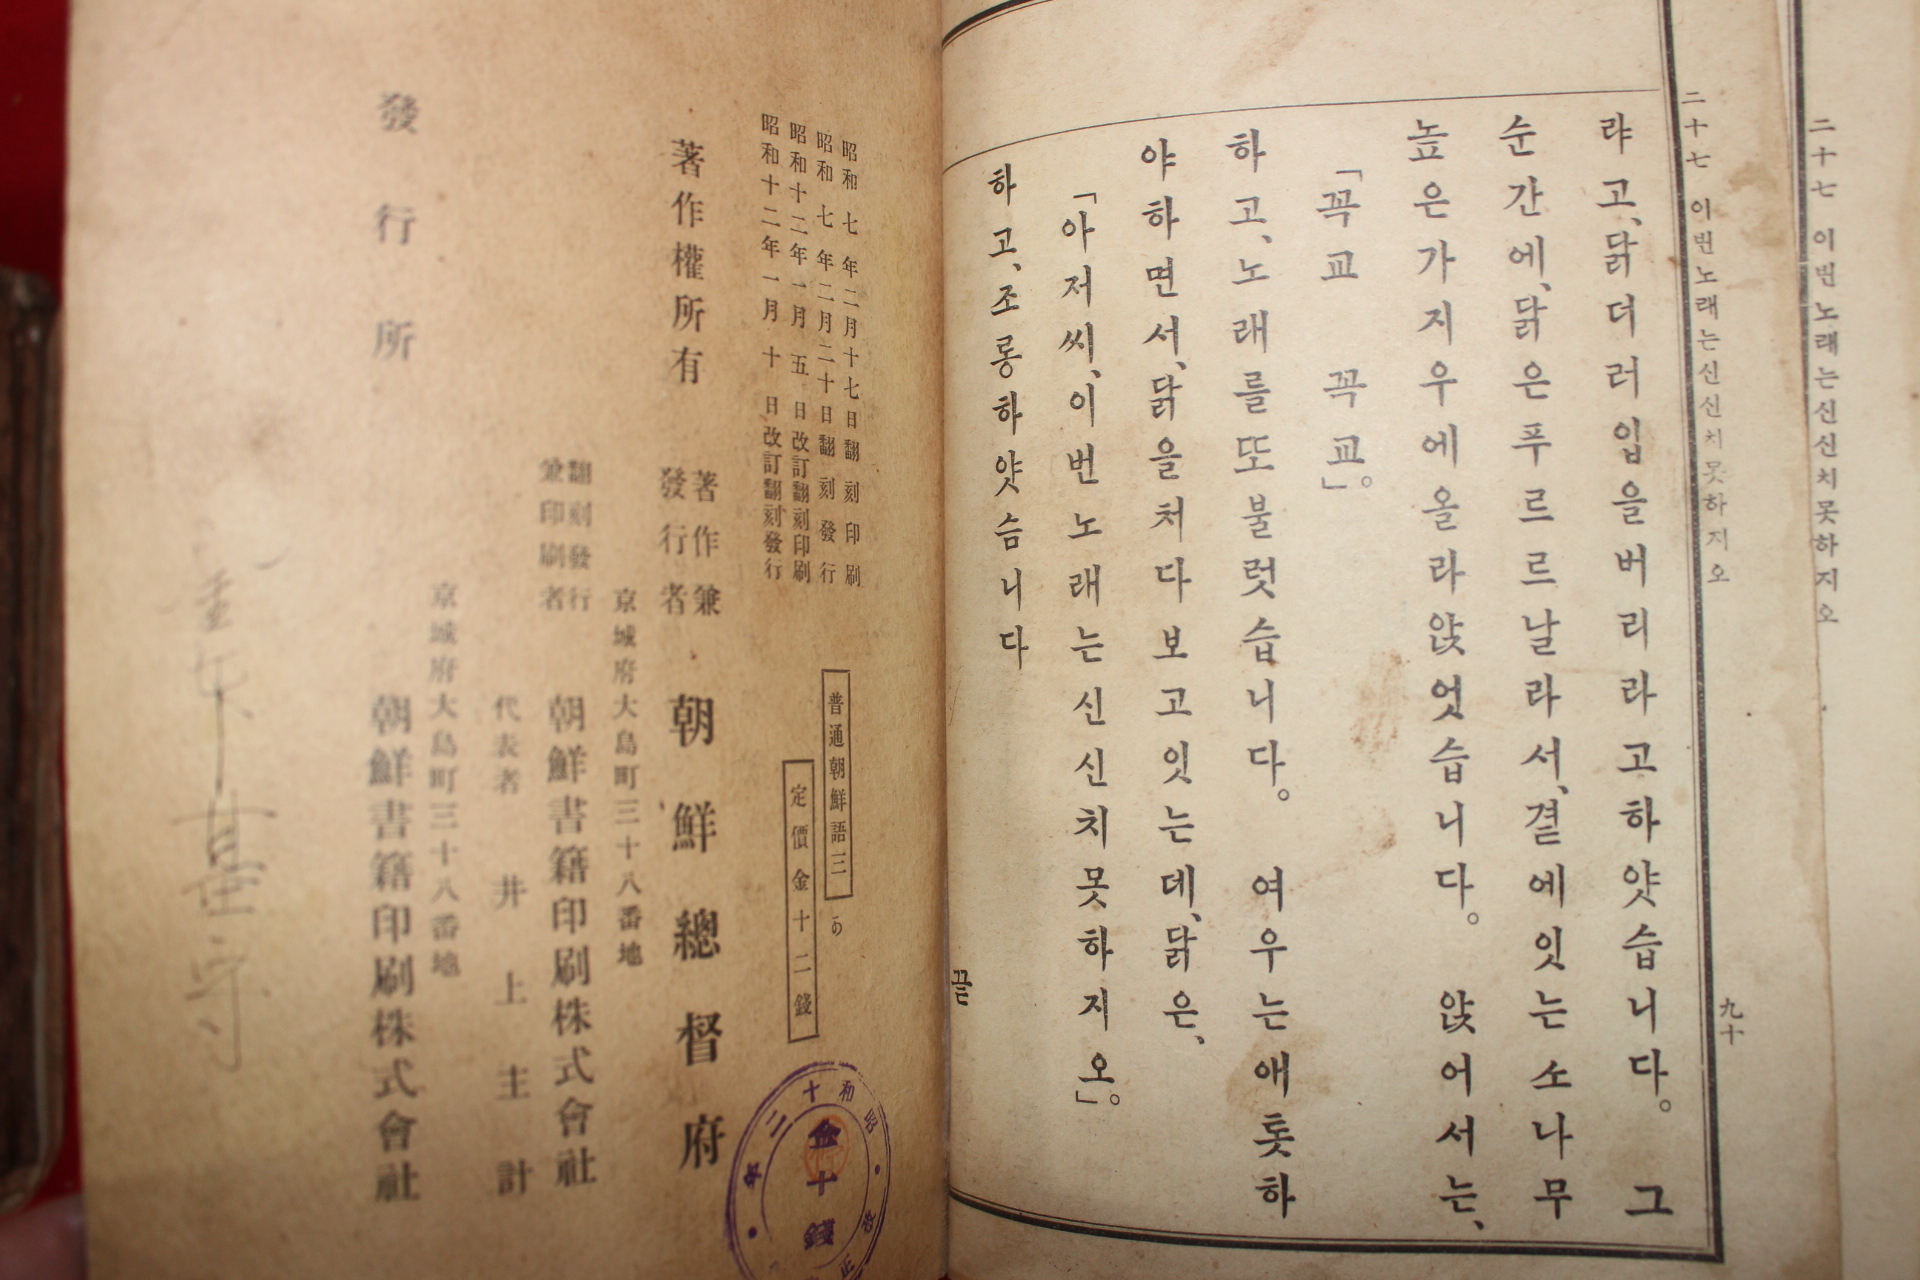 二十七 이번노래는신신치못하지오
二十七 이번노래는신신치못하지오
九十
랴고、닭더러입을버리라고하얏습니다。 그
순간에、닭은푸르르르날라서、곁에잇는소나무
높은가지우에올라앉엇습니다。 앉어서는、
「꼭교 꼭교」。
하고、노래를또불럿습니다。 여우는애톳하
야하면서、닭을처다보고잇는데、닭은、
「아저씨、이번노래는신신치못하지오」。
하고、조롱하얏습니다
끝
昭和七年二月十七日翻刻印刷
昭和七年二月二十日翻刻發行
昭和十二年一月五日改訂翻刻印刷
昭和十二年一月十日改訂翻刻發行
普通朝鮮語三
の
定價金十二錢
著作權所有
著作兼
發行者
朝鮮總督府
京城府大島町三十八番地
翻刻發行
兼印刷者
朝鮮書籍印刷株式會社
代表者 井上主計
京城府大島町三十八番地
發行所
朝鮮書籍印刷株式會社
昭和十二年
金十錢